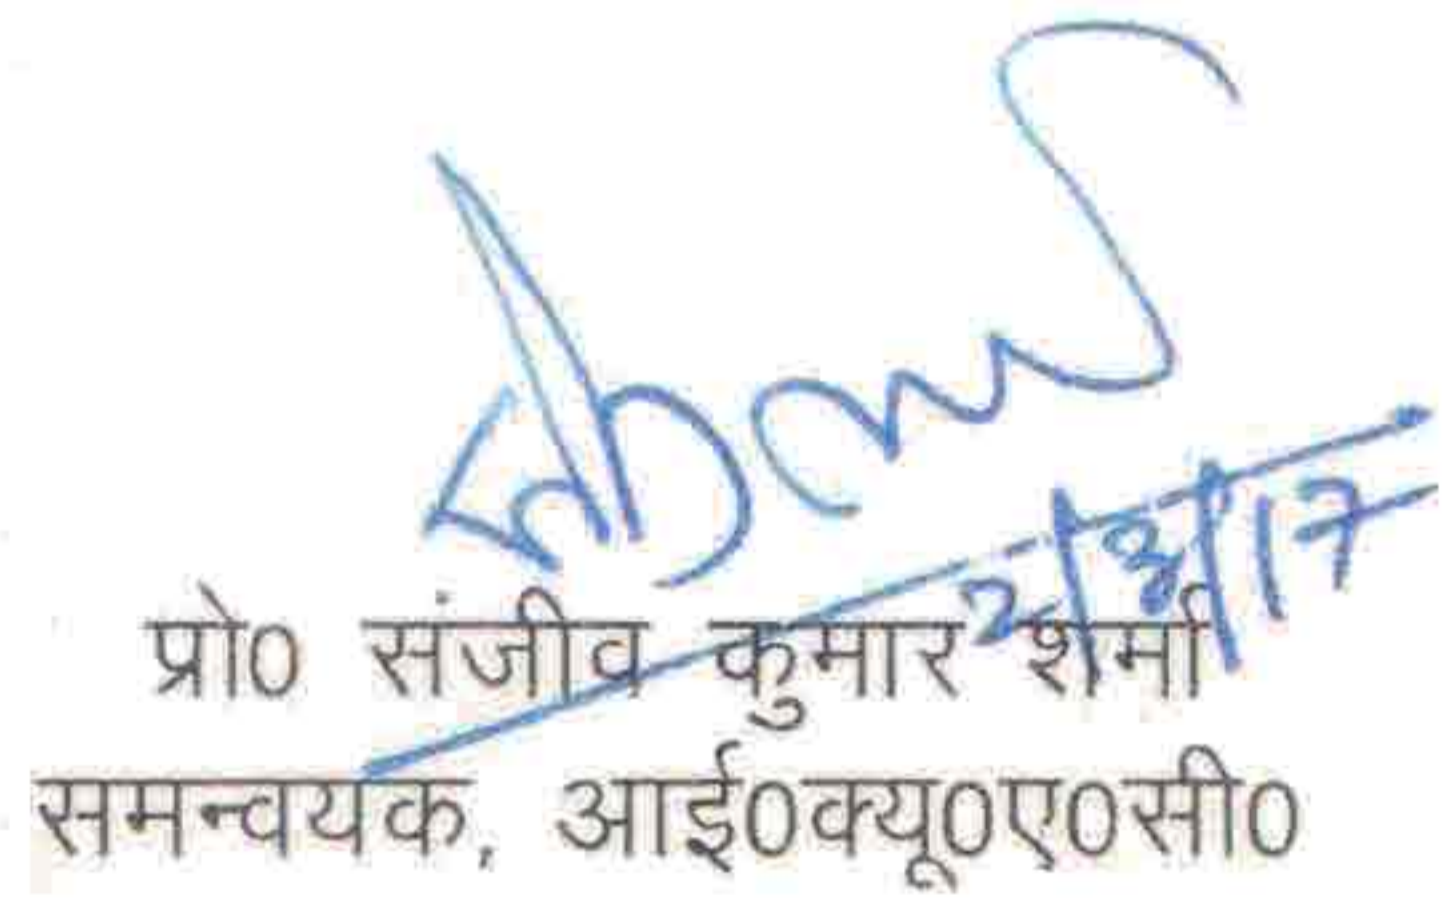 2/3/17
प्रो0 संजीव कुमार शर्मा
समन्वयक, आई0क्यू0ए0सी0